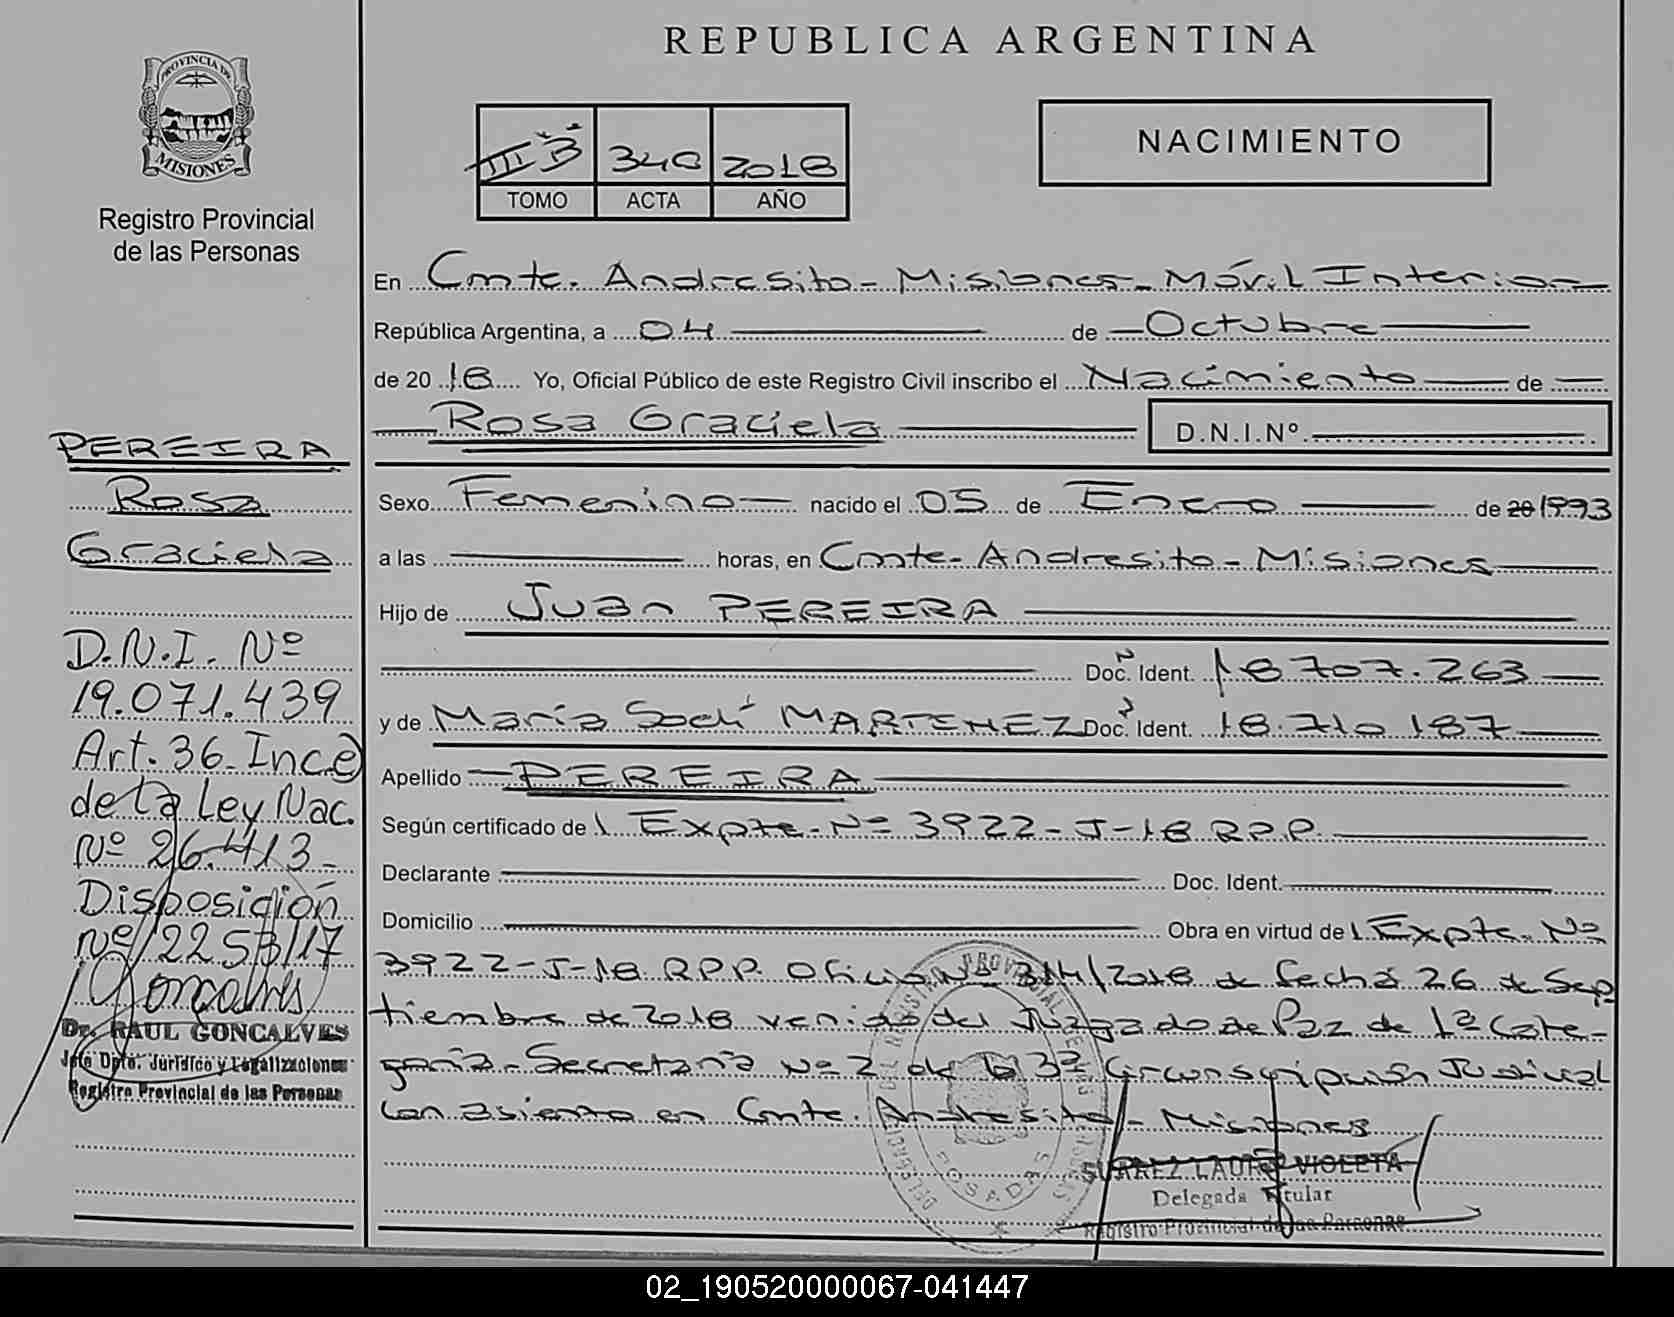 REPUBLICA ARGENTINA
PROVINCIA DE
MISIONES
Registro Provincial
de las Personas
NACIMIENTO
III B 2018
TOMO ACTA AÑO
En Cmte. Andresito - Misiones - Móvil Interior
República Argentina, a 04 de Octubre
de 20 18 Yo, Oficial Público de este Registro Civil inscribo el Nacimiento de
Rosa Graciela D.N.I.Nº
Sexo Femenino nacido el 05 de Enero de 20 1993
a las horas, en Cmte - Andresito - Misiones
Hijo de Juan PEREIRA
Doc. Ident. 18707.263
y de María Doc. Ident. 18.710 187
Apellido PEREIRA
Según certificado de 1 Expte. Nº 3922-J-18 R.P.P.
Declarante Doc. Ident.
Domicilio Obra en virtud de 1 Expte. Nº
3922-J-18 R.P.P. Oficio Nº 314/2018 de fecha 26 de Sep
tiembre de 2018 venido del Juzgado de Paz de 1ª Cate-
goría - Secretaría Nº 2 de la 3ª Circunscripción Judicial
con asiento en Cmte. Andresito - Misiones
SUAREZ LAURA VIOLETA
Delegada Titular
Registro Provincial de las Personas
PEREIRA
Rosa
Graciela
D.N.I. Nº
19.071.439
Art. 36 Inc e
de la Ley Nac.
Nº 26.413 -
Disposición
nº 2253/17
Goncalves
Dr. RAUL GONCALVES
Jefe Dpto. Jurídico y Legalizaciones
Registro Provincial de las Personas
POSADAS
02_190520000067-041447